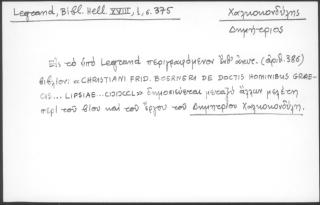 Legrand, Bibl. Hell. XVIII, 1, σ. 375
Χαλκοκονδύλης
Δημήτριος
Εἰς τὸ ὑπὸ Legrand περιγραφόμενον ἐνθ' ἀνωτ. (ἀριθ. 386)
βιβλίον: «CHRISTIANI FRID. BOERNERI DE DOCTIS HOMINIBUS GRÆ-
CIS... LIPSIAE... CIƆIƆCCL» δημοσιεύεται μεταξὺ ἄλλων μελέτη
περὶ τοῦ βίου καὶ τοῦ ἔργου τοῦ Δημητρίου Χαλκοκονδύλη.